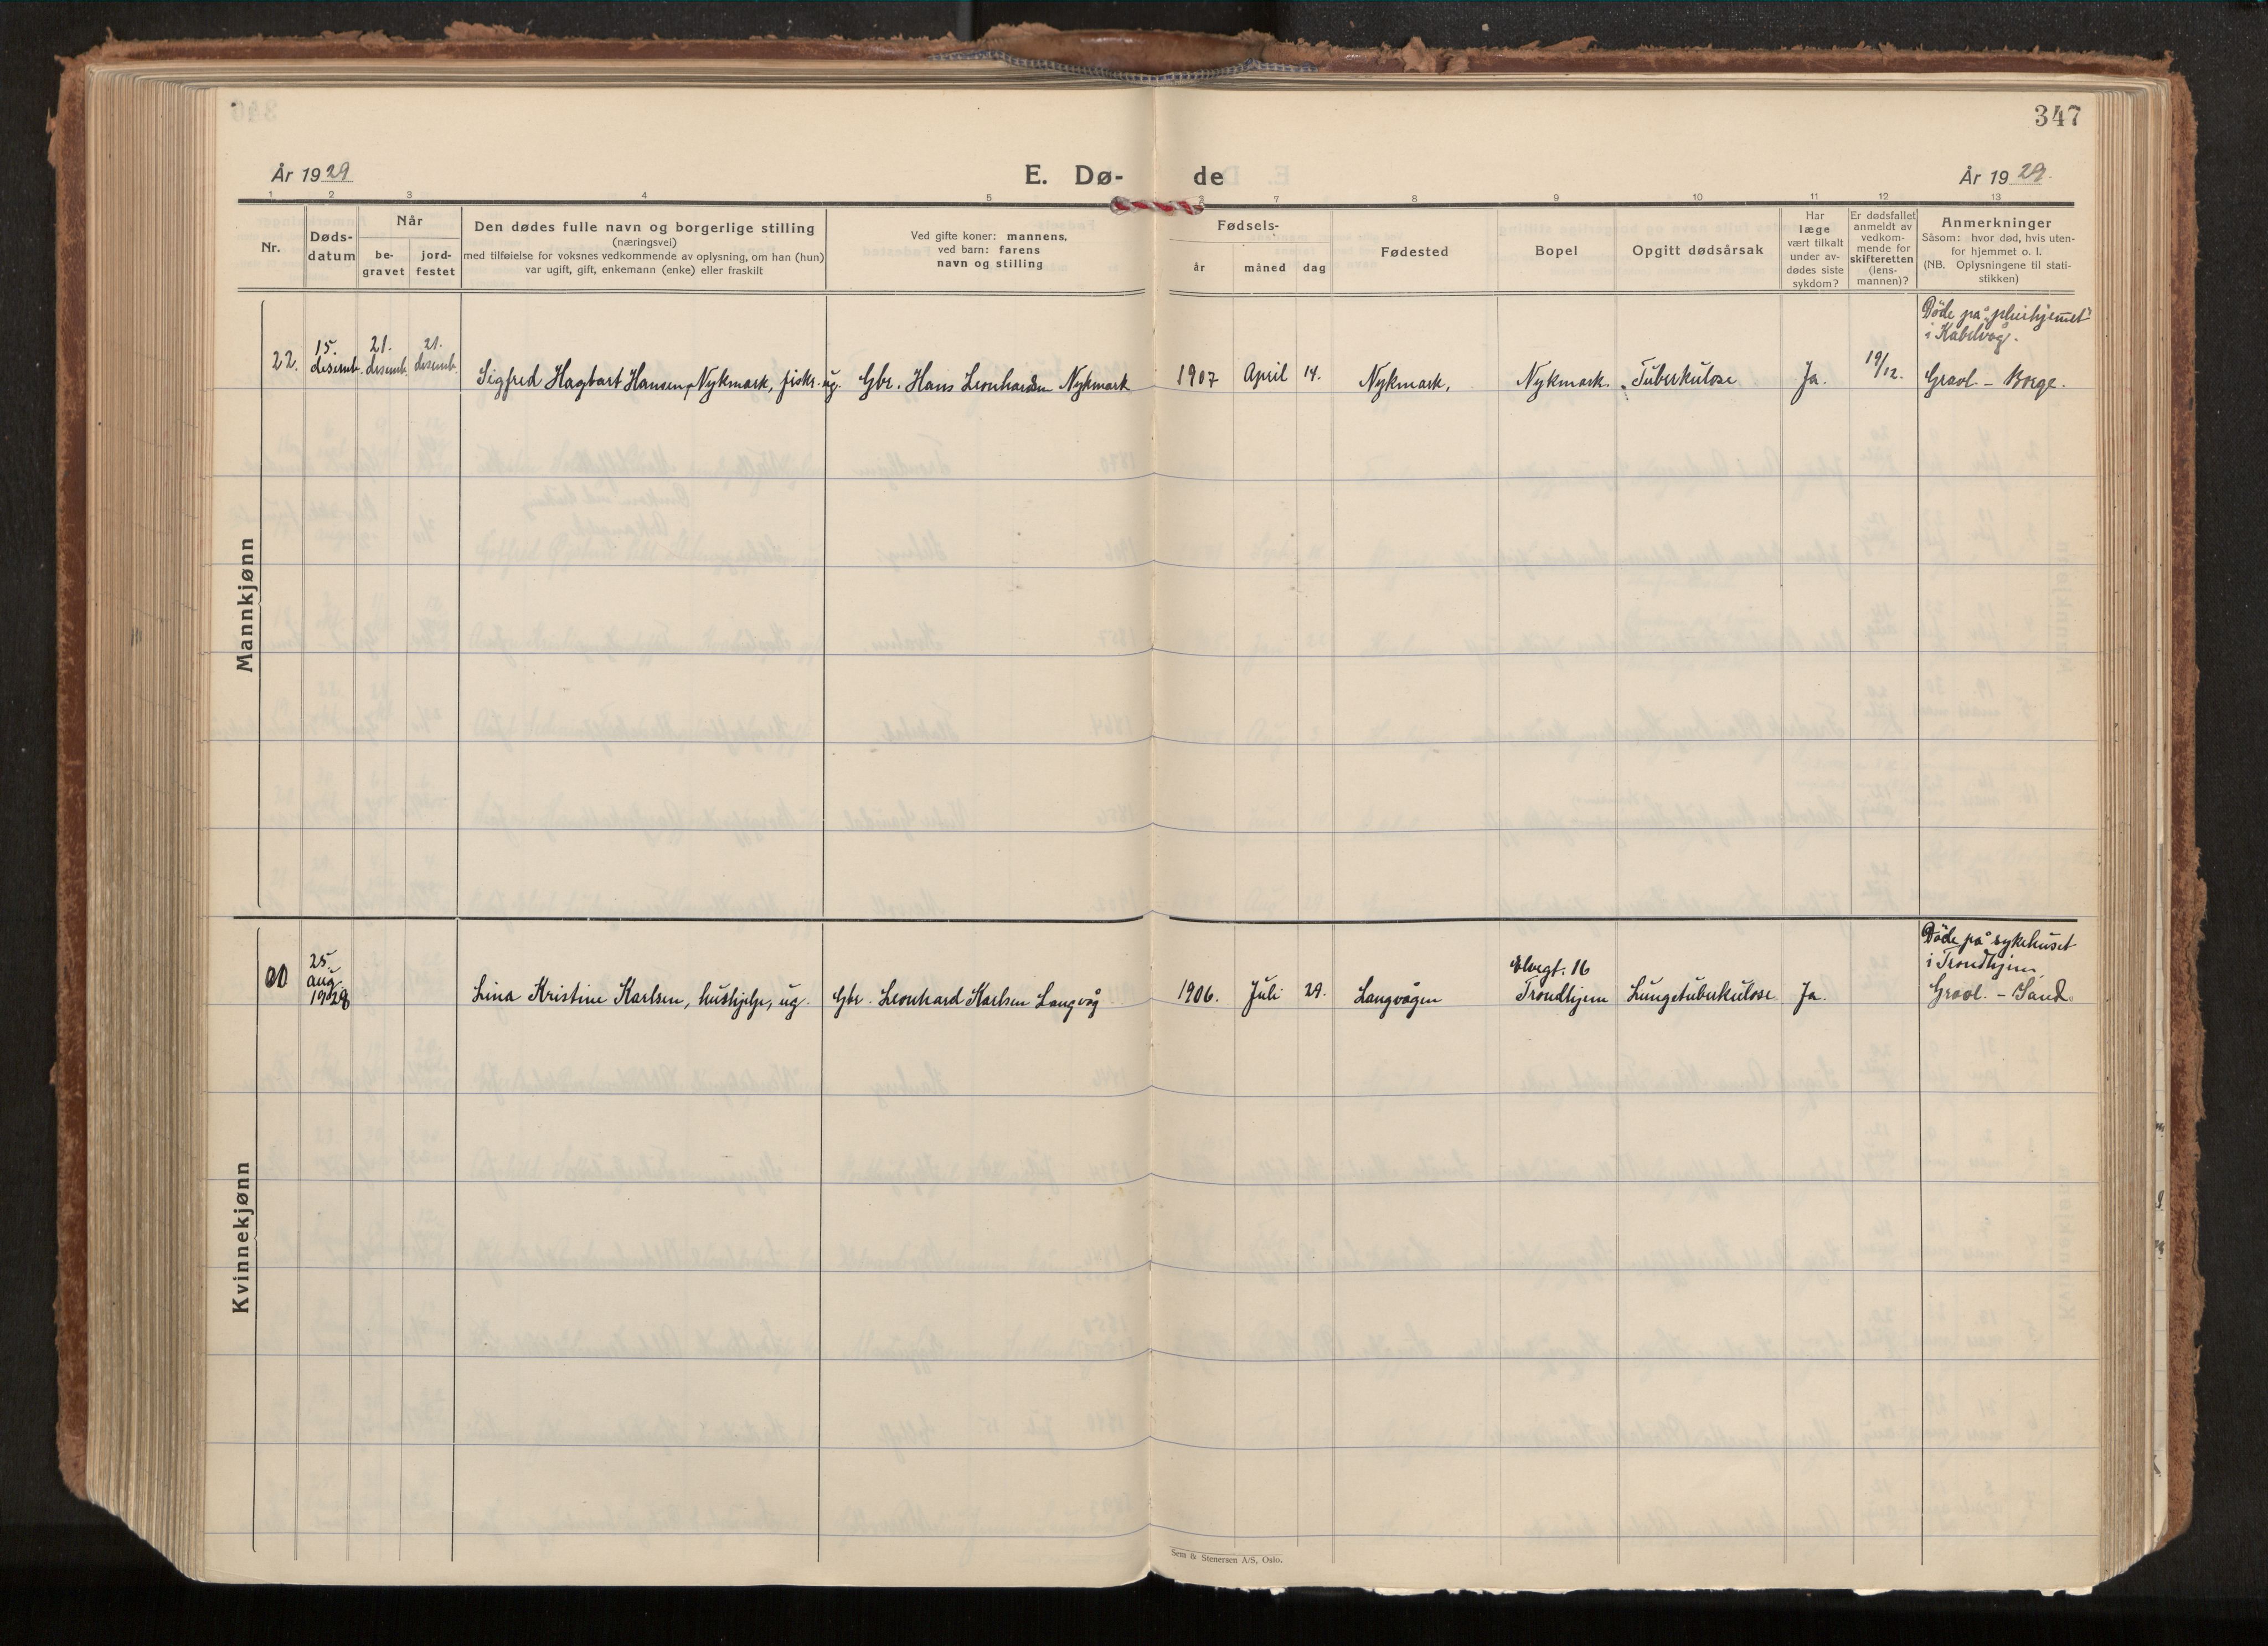 347
År 1929
E. Dø-
de
År 1929.
1 2 3 4 5 6 7 8 9 10 11 12 13
Nr.
Døds-
datum
Når
be-
gravet
jord-
festet
Den dødes fulle navn og borgerlige stilling
(næringsvei)
med tilføielse for voksnes vedkommende av oplysning, om han (hun)
var ugift, gift, enkemann (enke) eller fraskilt
Ved gifte koner: mannens,
ved barn: farens
navn og stilling
Fødsels-
år
måned
dag
Fødested
Bopel
Opgitt dødsårsak
Har
læge
vært tilkalt
under av-
dødes siste
sykdom?
Er dødsfallet
anmeldt av
vedkom-
mende for
skifteretten
(lens-
mannen)?
Anmerkninger
Såsom: hvor død, hvis uten-
for hjemmet o. l.
(NB. Oplysningene til stati-
stikken)
Mannkjønn
22.
15.
desemb.
21.
desemb.
21.
desemb.
Sigfred Hagbart Hansen, Nykmark, fisker. ug.
Gbr. Hans Leonhardsen Nykmark
1907
April
14.
Nykmark,
Nykmark.
Tuberkulose
Ja.
19/12.
Døde på "pleiehjemmet"
i Kabelvåg.
Gravl. - Borge.
Kvinnekjønn
20
25.
aug.
1928
Lina Kristine Karlsen, hushjelp, ug.
Gbr. Leonhard Karlsen Langvåg
1906.
Juli
29.
Langvågen
Elvegt. 16
Trondhjem
Lungetuberkulose
Ja.
Døde på sykehuset
i Trondhjem.
Gravl. - Sand.
Sem & Stenersen A/S, Oslo.